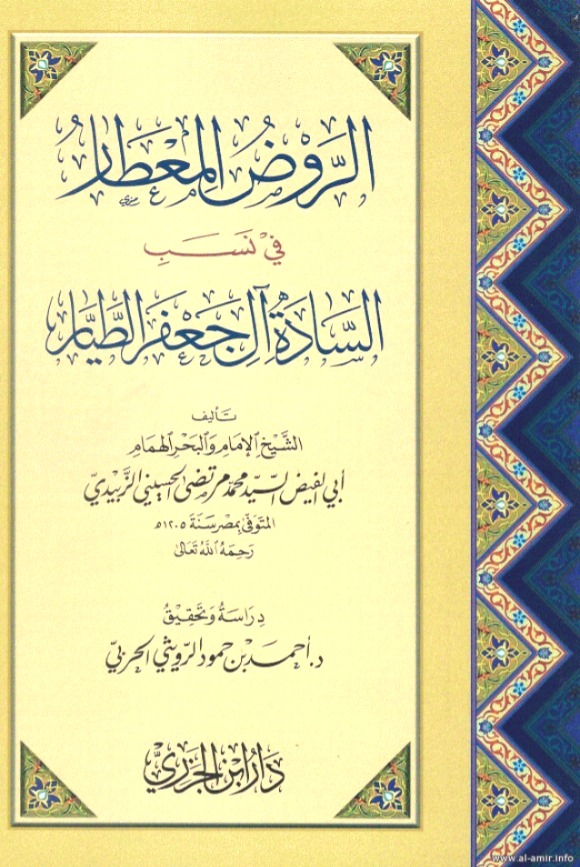 الرَّوْضُ المِعْطَارُ
فِي نَسَبِ
السَّادَةِ آلِ جَعْفَرِ الطَّيَّارِ
تأليف
الشَّيْخِ الإِمَامِ وَالبَحْرِ الهُمَامِ
أبي الفيض السيّد محمّد مرتضى الحسيني الزَّبِيدِيّ
المتوفى بمصر سَنَة ١٢٠٥هـ
رَحِمَهُ اللَّهُ تَعَالَىٰ
دِرَاسَةُ وَتَحْقِيْقُ
د. أحمَد بْن حمود الرويثي الحربيّ
دَارُ ابْنِ الجَزَرِيّ
www.al-amir.info